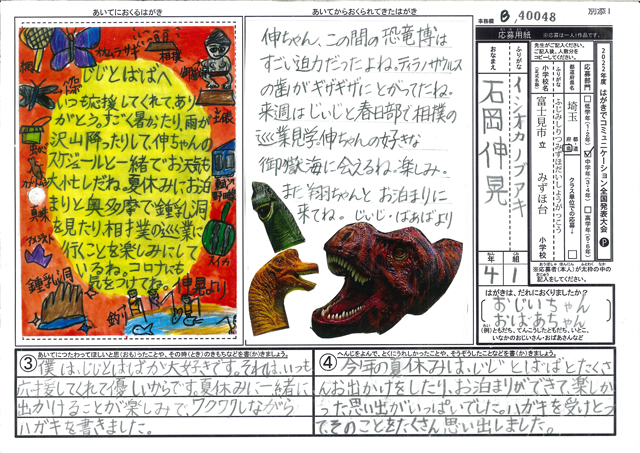 別添1
事務欄 B,40048
あいてにおくるはがき
じじとばばへ
いつも応援してくれてあり
がとう。すごく暑かたり、雨が
沢山降ったりして、伸ちゃんの
スケジュールと一緒でお天気も
大忙しだね。夏休みにお泊
まりと奥多摩で鍾乳洞
を見たり、相撲の巡業に
行くことを楽しみにして
いるね。コロナにも
気をつけてね。伸晃より
オオムラサキ
相撲
土俵
スイカ
花火
鍾乳洞
釣り
あいてからおくられてきたはがき
伸ちゃん、この間の恐竜博は
すごい迫力だったよね。ティラノサウルス
の歯がギザギザにとがってたね。
来週はじいじと春日部で相撲の
巡業見学。伸ちゃんの好きな
御嶽海に会えるね。楽しみ。
また翔ちゃんと お泊まりに
来てね。じいじ・ばあばより
2022年度 はがきでコミュニケーション全国発表大会
応募用紙 ※応募は一人1作品です。
先生がご記入ください。
ご記入後、人数分を
コピーしてください。
応募部門
低学年(1・2年)
中学年(3・4年)
高学年(5・6年)
クラス単位での応募
都道府県名
埼玉
小学校名
ふりがな
ふじみしりつみずほだいしょうがっこう
富士見市 立 みずほ台 小学校
おなまえ
ふりがな
イシオカ ノブアキ
石岡 伸晃
4年 1組
※応募者(本人)が太枠の中の
記入をしてください。
はがきは、だれにおくりましたか?
おじいちゃん
おばあちゃん
(例)ともだち、てんこうしたともだち、いとこ、
いなかのおじいさん・おばあさんなど
③ あいてにつたわってほしいと思(おも)ったことや、その時(とき)のきもちなどを書(か)きましょう。
僕は、じじとばばが大好きです。それは、いつも
応援してくれて優しいからです。夏休みに一緒に
出かけることが楽しみで、ワクワクしながら
ハガキを書きました。
④ へんじをよんで、とくにうれしかったことや、そうぞうしたことなどを書(か)きましょう。
今年の夏休みは、じじとばばとたくさ
んお出かけをしたり、お泊まりができて楽しか
った思い出がいっぱいでした。ハガキを受けとっ
て、そのことをたくさん思い出しました。